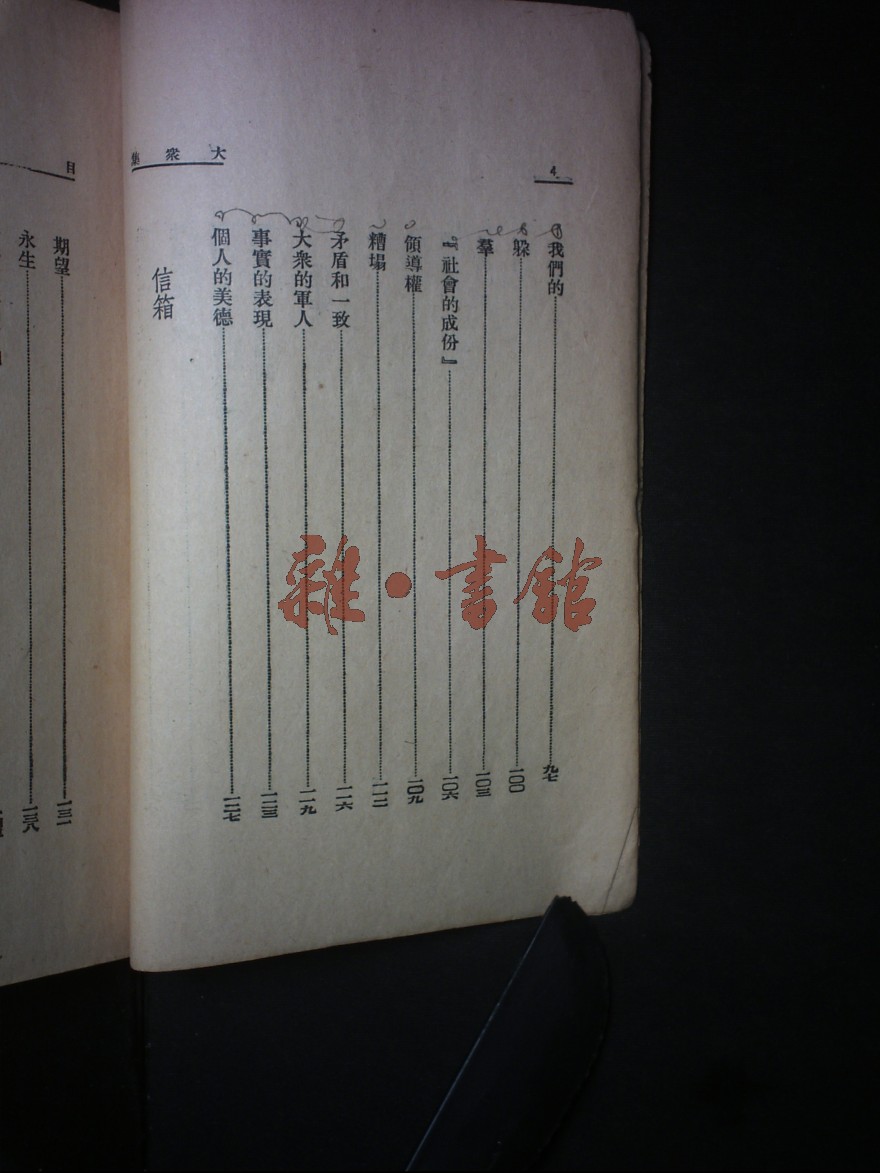 4
大衆集
我們的……九七
躲……一〇〇
羣……一〇三
『社會的成份』……一〇六
領導權……一〇九
糟塌……一一二
矛盾和一致……一一六
大衆的軍人……一一九
事實的表現……一二三
個人的美德……一二七
信箱
目
期望……一三一
永生……一三八
雜·書館